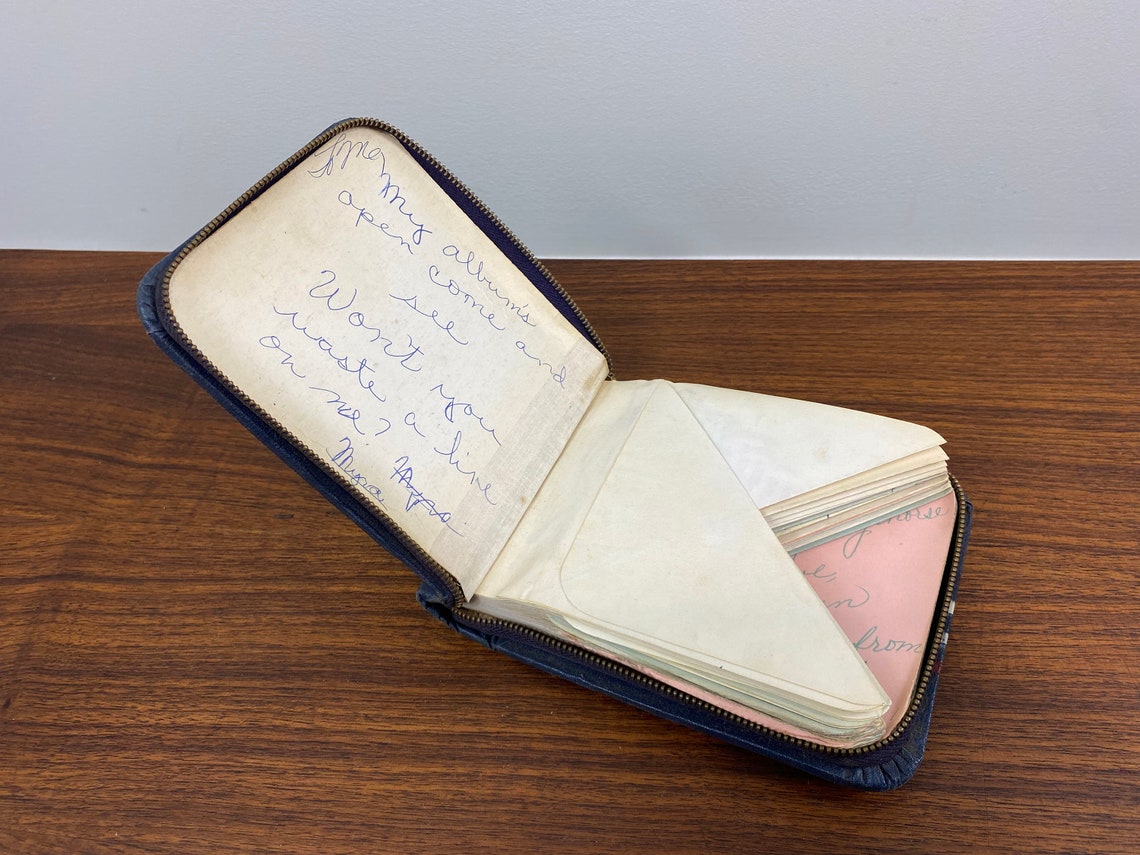 My album's
open come and
see
Won't you
waste a line
on me?
Myra
from